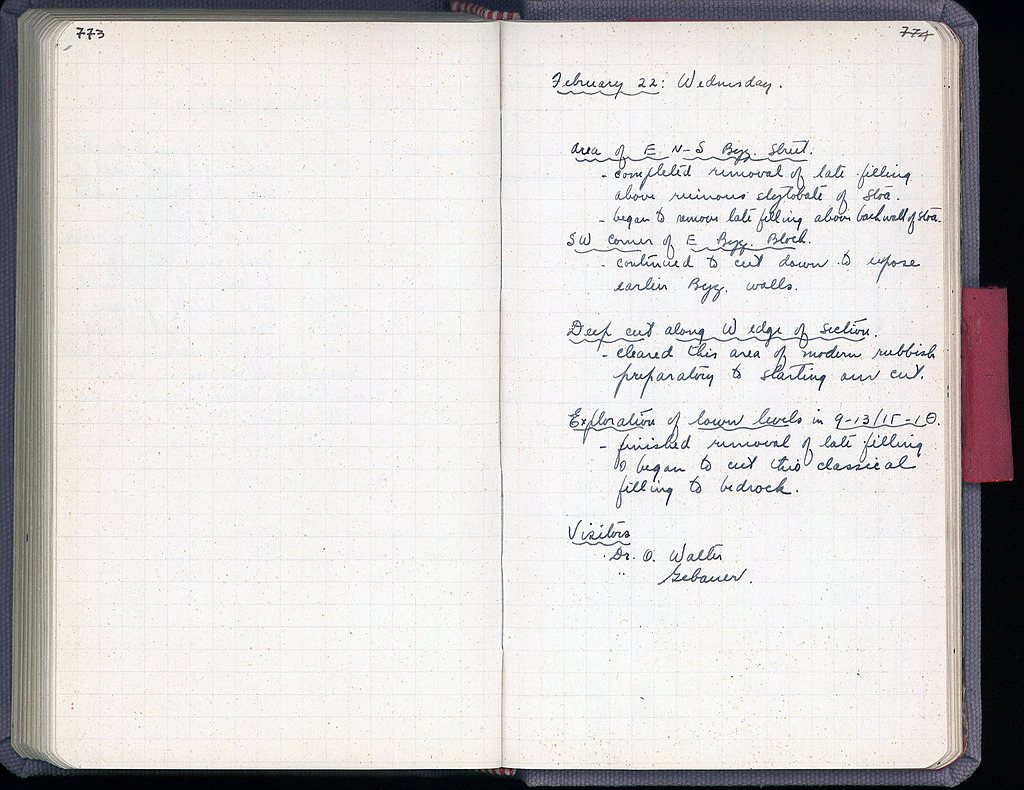 773
774
February 22: Wednesday.
Area of E N-S Byz. Street.
- completed removal of late filling
above ruinous stylobate of Stoa.
- began to remove late filling above back wall of Stoa.
SW corner of E Byz. Block.
- continued to cut down to expose
earlier Byz. walls.
Deep cut along W edge of section.
- cleared this area of modern rubbish
preparatory to starting our cut.
Exploration of lower levels in 9-13/15-1Θ.
- finished removal of late filling
& began to cut thro classical
filling to bedrock.
Visitors
Dr. O. Walter
" Gebauer.